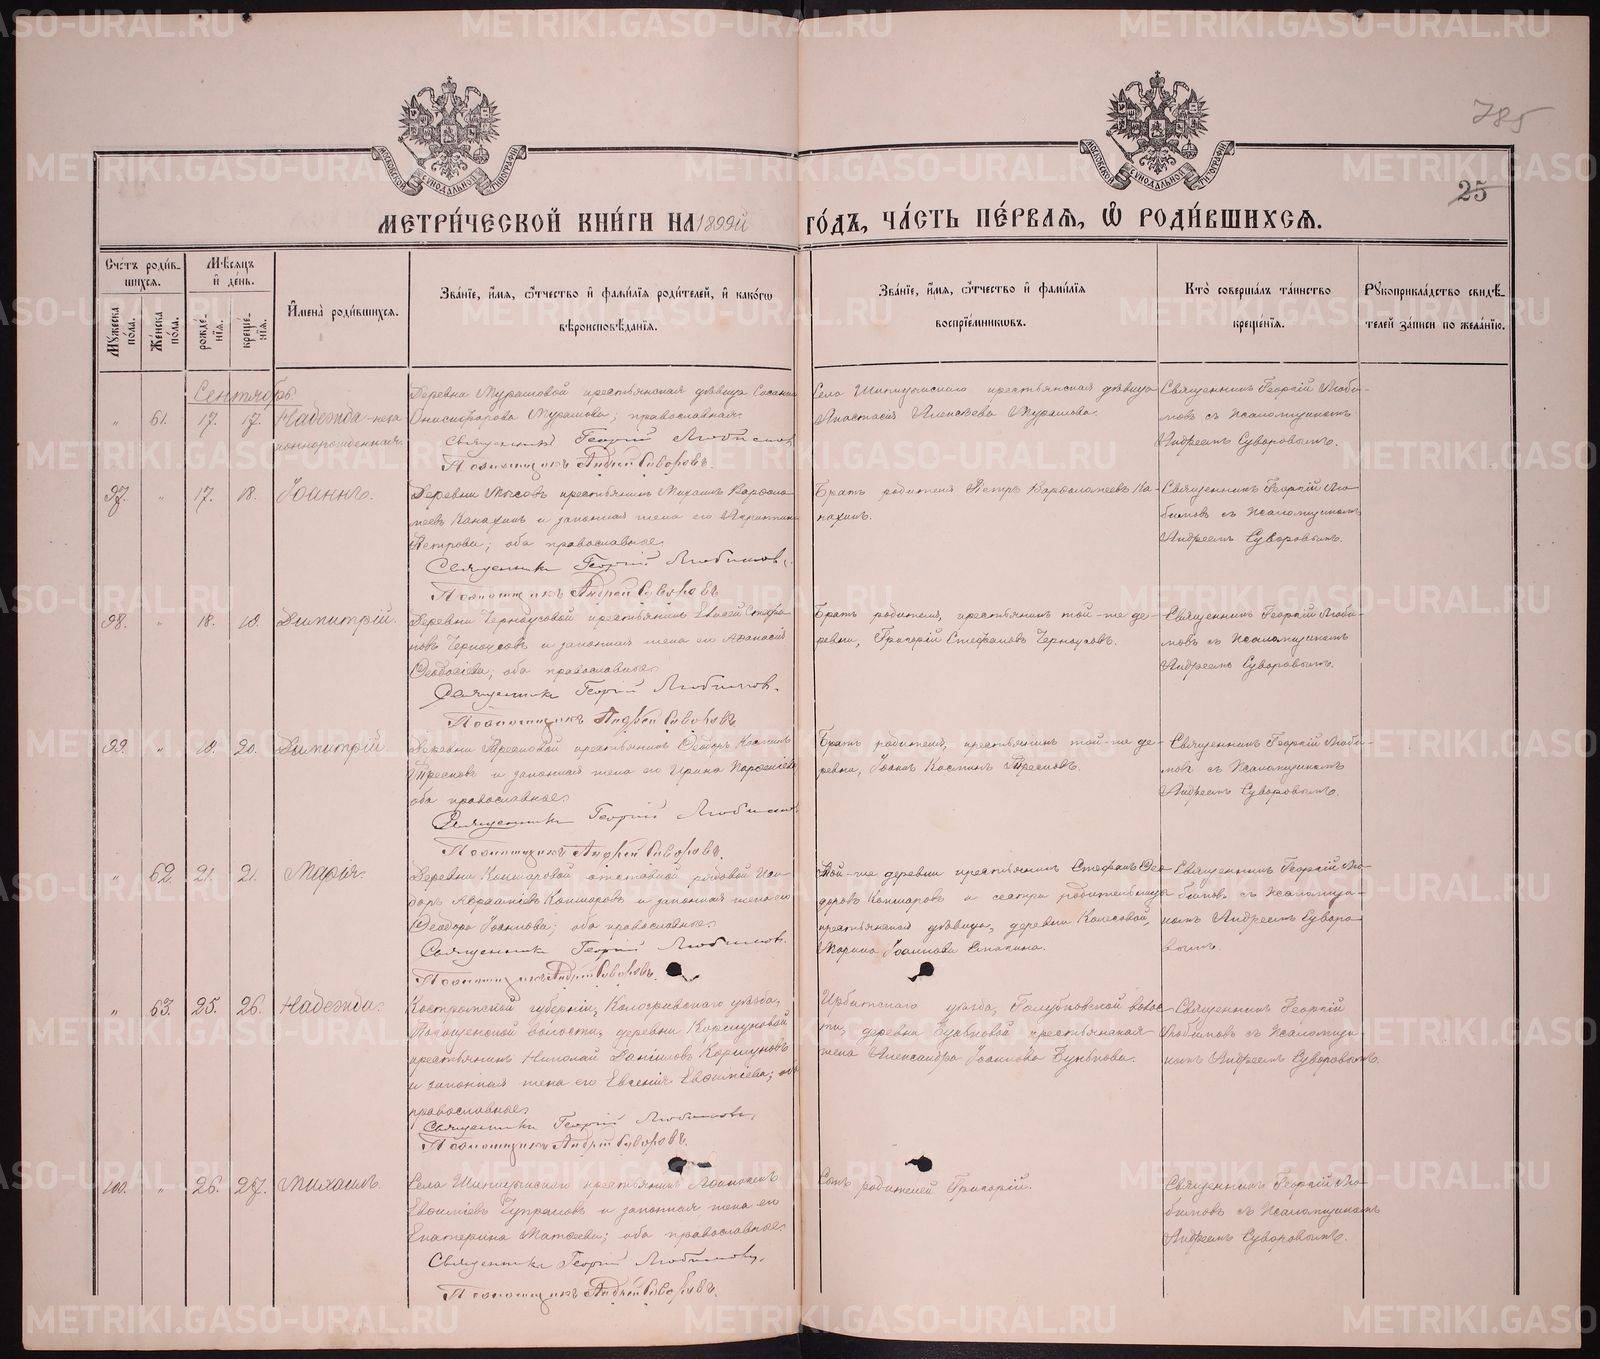 785
25
МОСКОВСКОЙ СѴНОДАЛЬНОЙ ТИПОГРАФІИ
МОСКОВСКОЙ СѴНОДАЛЬНОЙ ТИПОГРАФІИ
МЕТРИ́ЧЕСКОЙ КНИ́ГИ НА 1899й ГО́ДЪ, ЧА́СТЬ ПЕ́РВАЯ, Ѡ РОДИ́ВШИХСЯ.
Сче́тъ роди́вшихся.
Му́жеска по́ла.
Же́нска по́ла.
Мѣ́сяцъ и де́нь.
рожде́нїя.
креще́нїя.
Имена̀ роди́вшихся.
Зва́нїе, и́мя, ѻ́тчество и фами́лїя роди́телей, и како́гѡ
вѣроисповѣ́данїя.
Зва́нїе, и́мя, ѻ́тчество и фами́лїя
воспрїе́мникѡвъ.
Кто̀ соверша́лъ та́инство
креще́нїя.
Рꙋкоприкла́дство свидѣ́-
телей за́писи по жела́нїю.
Сентябрь
" 61. 17. 17. Надежда неза-
коннорожденная.
Деревни Мурашовой крестьянская дѣвица
Онисифорова Мурашова; православная.
Священникъ Георгій Любимов
Псаломщикъ Андрей Суворовъ.
Села крестьянская дѣвица
Анастасія Алексѣева Мурашова.
Священникъ Георгій Люби-
мовъ съ Псаломщикомъ
Андреемъ Суворовымъ.
97. " 17. 18. Іоаннъ.
Деревни крестьянинъ Михаилъ Варѳоло-
меевъ и законная жена его
Петрова; оба православные.
Священникъ Георгій Любимовъ.
Псаломщикъ Андрей Суворовъ
Братъ родителя Петръ Варѳоломеевъ
Священникъ Георгій Лю-
бимовъ съ Псаломщикомъ
Андреемъ Суворовымъ.
98. " 18. 18. Димитрій.
Деревни Черноусовой крестьянинъ Евсей Стефа-
новъ Черноусовъ и законная жена его Аѳанасія
Ѳеодосіева; оба православные.
Священникъ Георгій Любимовъ.
Псаломщикъ Андрей Суворовъ
Братъ родителя, крестьянинъ той-же де-
ревни, Григорій Стефановъ Черноусовъ.
Священникъ Георгій Люби-
мовъ съ Псаломщикомъ
Андреемъ Суворовымъ.
99. " 18. 20. Димитрій
Деревни Трескова крестьянинъ Ѳеодоръ Косминъ
Тресковъ и законная жена его Ирина Парѳеніева
оба православные.
Священникъ Георгій Любимов
Псаломщикъ Андрей Суворовъ.
Братъ родителя, крестьянинъ той-же де-
ревни, Іоаннъ Косминъ Тресковъ.
Священникъ Георгій Люби-
мовъ съ Псаломщикомъ
Андреемъ Суворовымъ.
" 62. 21. 21. Марія.
Деревни Кошкаровой отставной рядовой Иси-
доръ Авраамовъ Кошкаровъ и законная жена его
Ѳеодора Іоаннова; оба православные.
Священникъ Георгій Любимов.
Псаломщикъ Андрей Суворовъ.
Той-же деревни крестьянинъ Стефанъ Ѳео-
доровъ Кошкаровъ и сестра родительницы
крестьянская дѣвица, деревни Колесовой,
Марина Іоаннова
Священникъ Георгій Лю-
бимовъ съ Псаломщи-
комъ Андреемъ Суворо-
вымъ.
" 63. 25. 26. Надежда.
Костромской губерніи, Кологривскаго уѣзда,
волости, деревни Коршуновой
крестьянинъ Николай Даниловъ Коршуновъ
и законная жена его Евгенія Евѳиміева; оба
православные.
Священникъ Георгій Любимовъ.
Псаломщикъ Андрей Суворовъ.
Ирбитскаго уѣзда, Голубковской волос-
ти, деревни Бунковой крестьянская
жена Александра Іоаннова Бунькова.
Священникъ Георгій
Любимовъ съ Псаломщи-
комъ Андреемъ Суворовымъ.
100. " 26. 27. Михаилъ.
Села крестьянинъ
Евѳиміевъ Чупраковъ и законная жена его
Екатерина Матѳеева; оба православные.
Священникъ Георгій Любимовъ.
Псаломщикъ Андрей Суворовъ.
Сынъ родителей Григорій.
Священникъ Георгій Лю-
бимовъ съ Псаломщикомъ
Андреемъ Суворовымъ.
METRIKI.GASO-URAL.RU